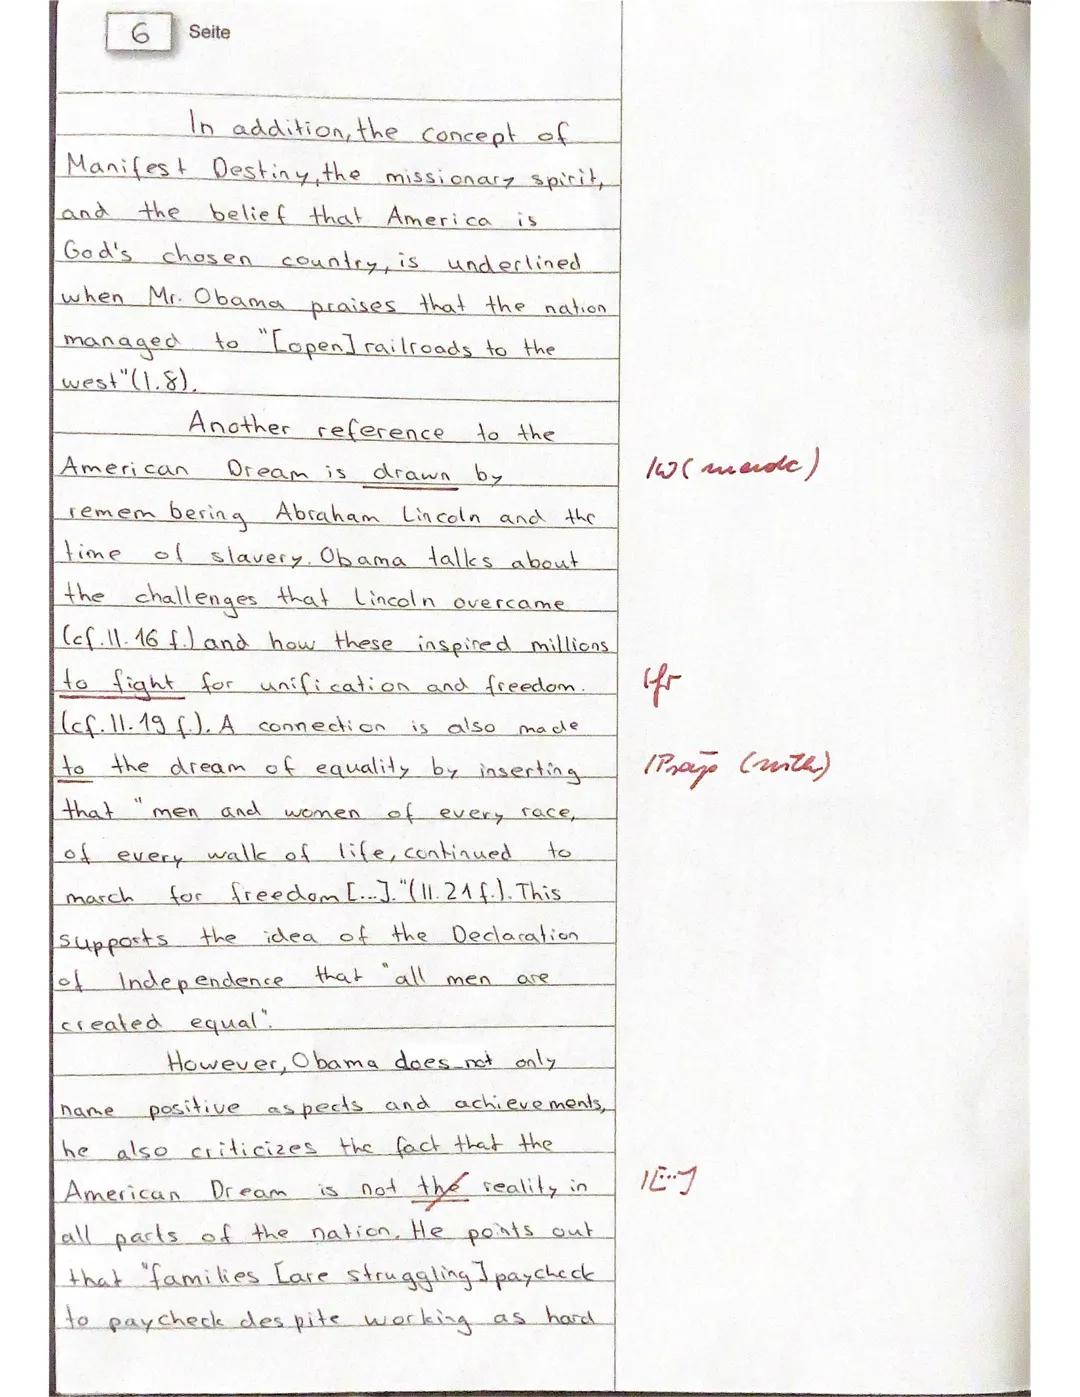 6 Seite
In addition, the concept of
Manifest Destiny, the missionary spirit,
and the belief that America is
God's chosen country, is underlined
when Mr. Obama praises that the nation
managed to "[open] railroads to the
west" (l. 8).
Another reference to the
American Dream is drawn by
/W (made)
remembering Abraham Lincoln and the
time of slavery. Obama talks about
the challenges that Lincoln overcame
(cf. ll. 16 f.) and how these inspired millions
to fight for unification and freedom.
(cf. ll. 19 f.). A connection is also made
to the dream of equality by inserting
(with)
that "men and women of every race,
of every walk of life, continued to
march for freedom [...]." (ll. 21 f.). This
supports the idea of the Declaration
of Independence that "all men are
created equal".
However, Obama does not only
name positive aspects and achievements,
he also criticizes the fact that the
American Dream is not the reality in
all parts of the nation. He points out
that "families [are struggling] paycheck
to paycheck despite working as hard